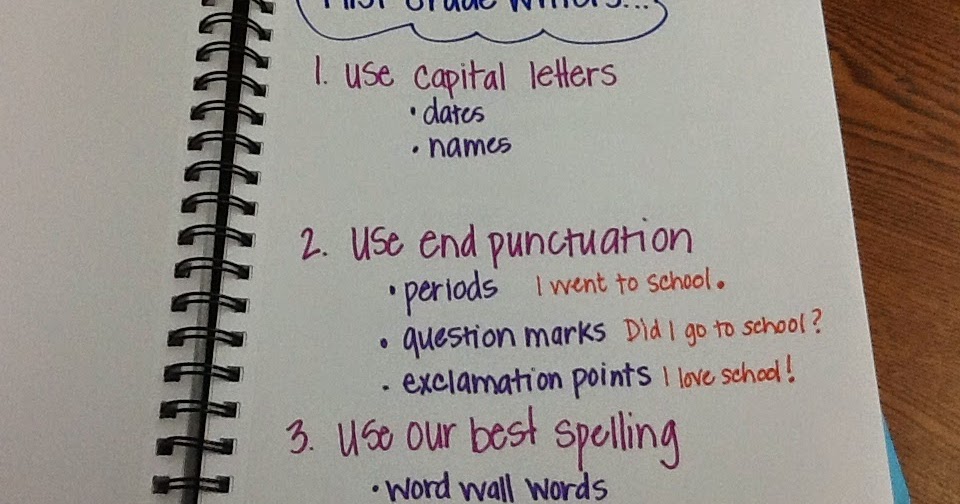 First Grade Writers...
1. Use capital letters
• dates
• names
2. Use end punctuation
• periods I went to school.
• question marks Did I go to school?
• exclamation points I love school!
3. Use our best spelling
• word wall words